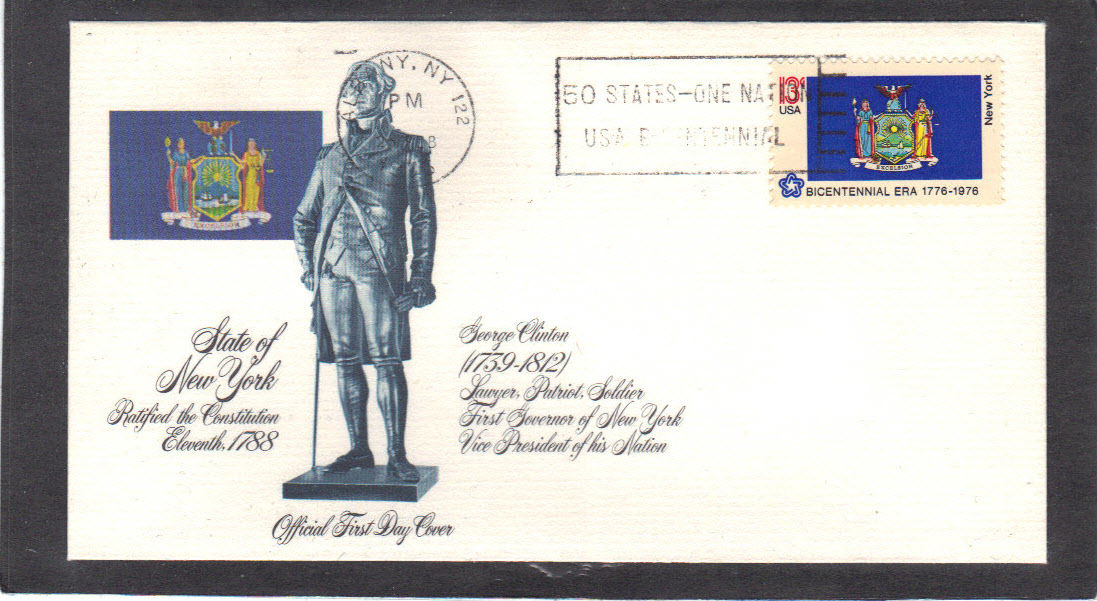 ALBANY, NY 122
PM
50 STATES-ONE NATION
USA BICENTENNIAL
13¢
USA
New York
EXCELSIOR
BICENTENNIAL ERA 1776-1976
EXCELSIOR
State of
New York
Ratified the Constitution
Eleventh, 1788
George Clinton
(1739-1812)
Lawyer, Patriot, Soldier
First Governor of New York
Vice President of his Nation
Official First Day Cover